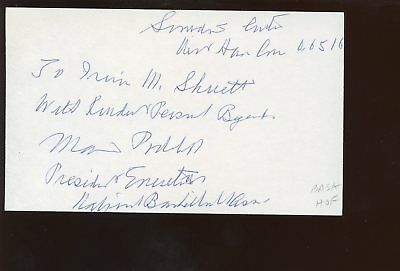 New Haven Conn 06516
To Irwin M.
With Kindest Personal Regards
Maurice Podoloff
President Emeritus
National Basketball Assn.
BASK
HOF